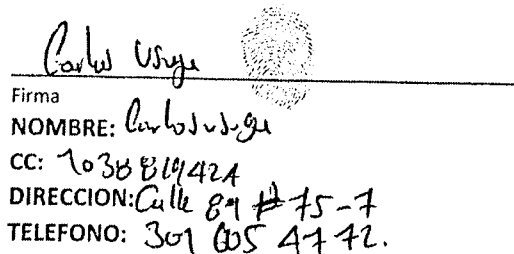 Carlos Usuga
Firma
NOMBRE: Carlos usuga
CC: 1038819424
DIRECCION: Calle 89 # 75-7
TELEFONO: 301 605 47 72.